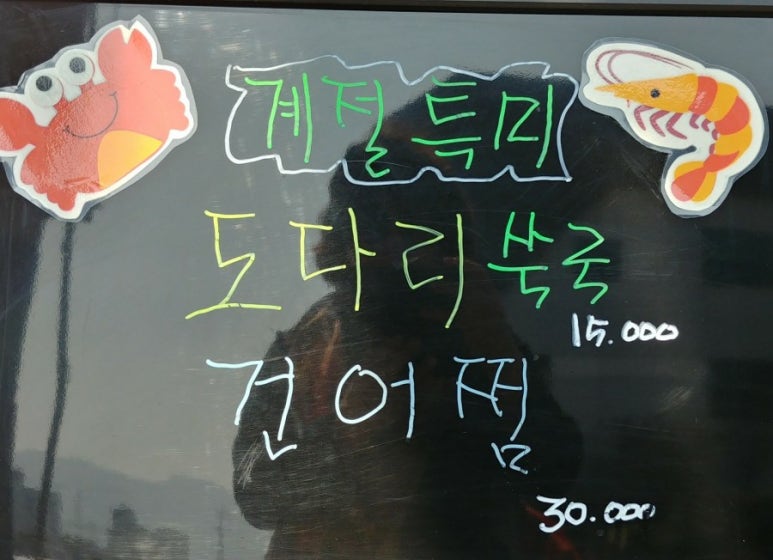 계절특미
도다리쑥국
15.000
건어찜
30.000